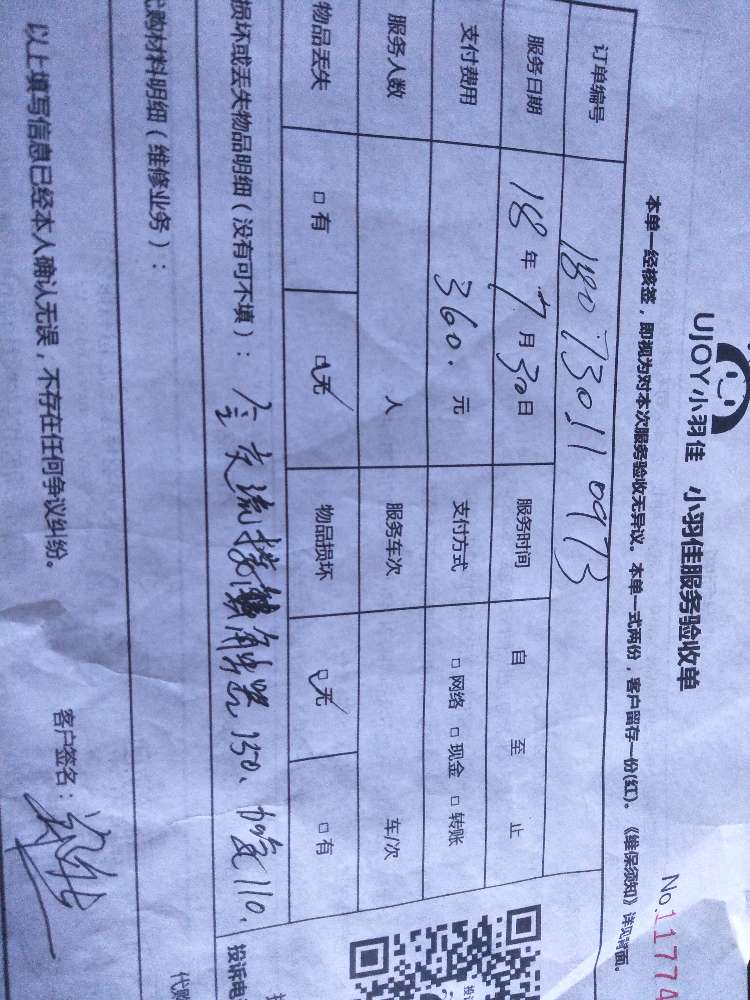 UJOY小羽佳 小羽佳服务验收单
No.11774
本单一经核签，即视为对本次服务验收无异议。本单一式两份，客户留存一份(红)。《维保须知》详见背面。
订单编号 180730110973
服务日期 18年7月30日 服务时间 自 至 止
支付费用 360.元 支付方式 □网络 □现金 □转账
服务人数 人 服务车次 车/次
物品丢失 □有 □无 物品损坏 □无 □有
损坏或丢失物品明细（没有可不填）： 交流接触器150、加氟110、
投诉电
购材料明细（维修业务）：
代购
以上填写信息已经本人确认无误，不存在任何争议纠纷。 客户签名：